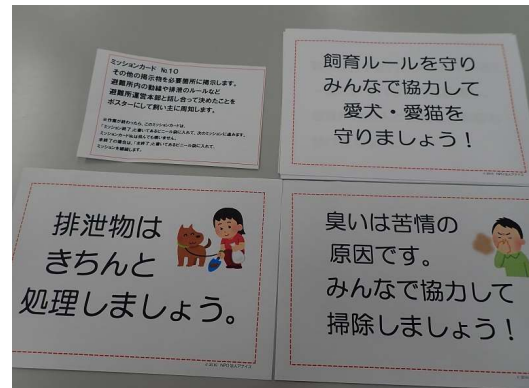 ミッションカード №10
その他の掲示物を必要箇所に掲示します。
避難所内の動線や排泄のルールなど
避難所運営本部と話し合って決めたことを
ポスターにして飼い主に周知します。
飼育ルールを守り
みんなで協力して
愛犬・愛猫を
守りましょう!
排泄物は
きちんと
処理しましょう。
臭いは苦情の
原因です。
みんなで協力して
掃除しましょう!